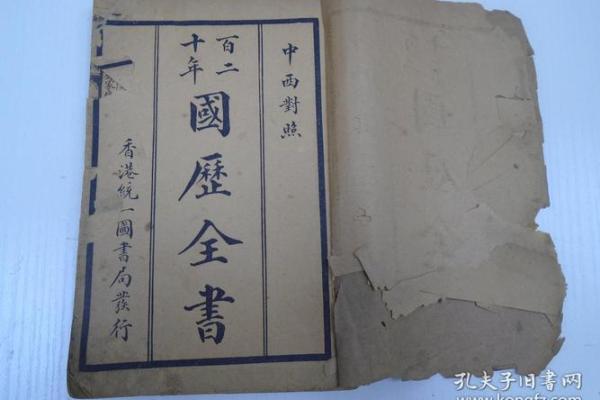 中西對照
百二十年
國歷全書
香港統一圖書局發行
孔夫子旧书网
www.kongfz.com